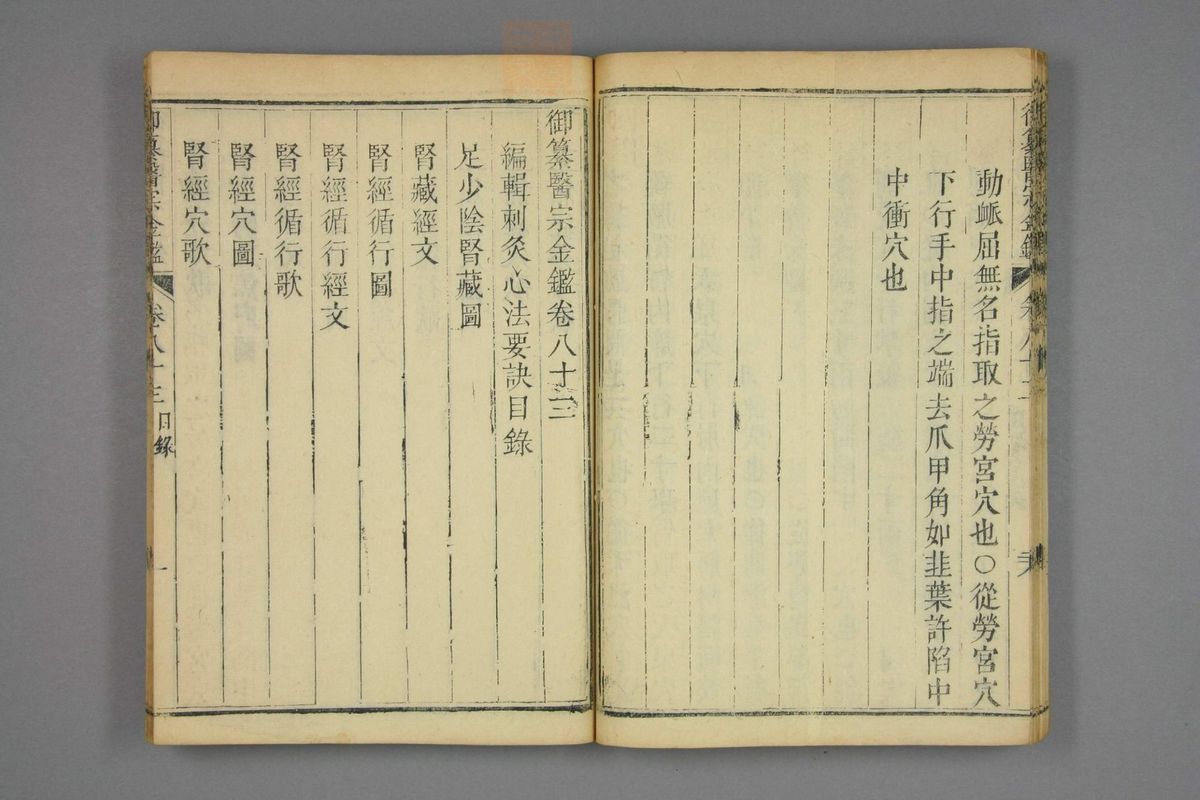 動䘑屈無名指取之勞宮穴也○從勞宮穴
下行手中指之端去爪甲角如韭葉許陷中
中衝穴也
御纂醫宗金鑑卷八十三
編輯刺灸心法要訣目錄
足少陰腎藏圖
腎藏經文
腎經循行圖
腎經循行經文
腎經循行歌
腎經穴圖
腎經穴歌
御纂醫宗金鑑
卷八十三 目錄
一